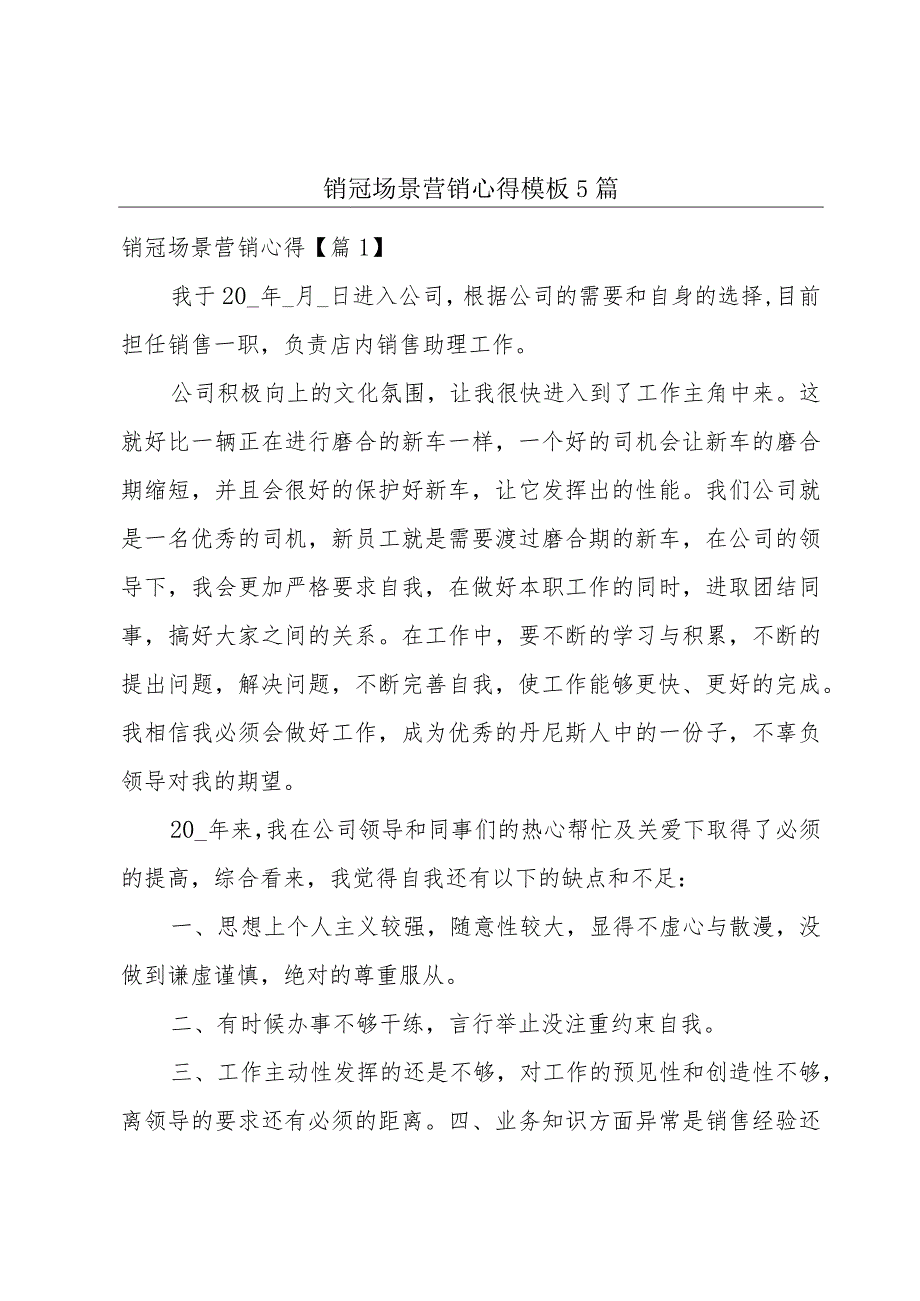 销冠场景营销心得模板 5 篇
销冠场景营销心得【篇 1】
我于 20_年_月_日进入公司，根据公司的需要和自身的选择,目前
担任销售一职，负责店内销售助理工作。
公司积极向上的文化氛围，让我很快进入到了工作主角中来。这
就好比一辆正在进行磨合的新车一样，一个好的司机会让新车的磨合
期缩短，并且会很好的保护好新车，让它发挥出的性能。我们公司就
是一名优秀的司机，新员工就是需要渡过磨合期的新车，在公司的领
导下，我会更加严格要求自我，在做好本职工作的同时，进取团结同
事，搞好大家之间的关系。在工作中，要不断的学习与积累，不断的
提出问题，解决问题，不断完善自我，使工作能够更快、更好的完成。
我相信我必须会做好工作，成为优秀的丹尼斯人中的一份子，不辜负
领导对我的期望。
20_年来,我在公司领导和同事们的热心帮忙及关爱下取得了必须
的提高，综合看来，我觉得自我还有以下的缺点和不足：
一、思想上个人主义较强，随意性较大，显得不虚心与散漫，没
做到谦虚谨慎，绝对的尊重服从。
二、有时候办事不够干练，言行举止没注重约束自我。
三、工作主动性发挥的还是不够，对工作的预见性和创造性不够，
离领导的要求还有必须的距离。四、业务知识方面异常是销售经验还